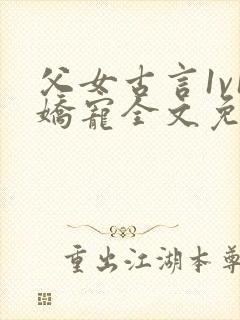 父女古言1v1
嬌寵全文免
重出江湖本尊